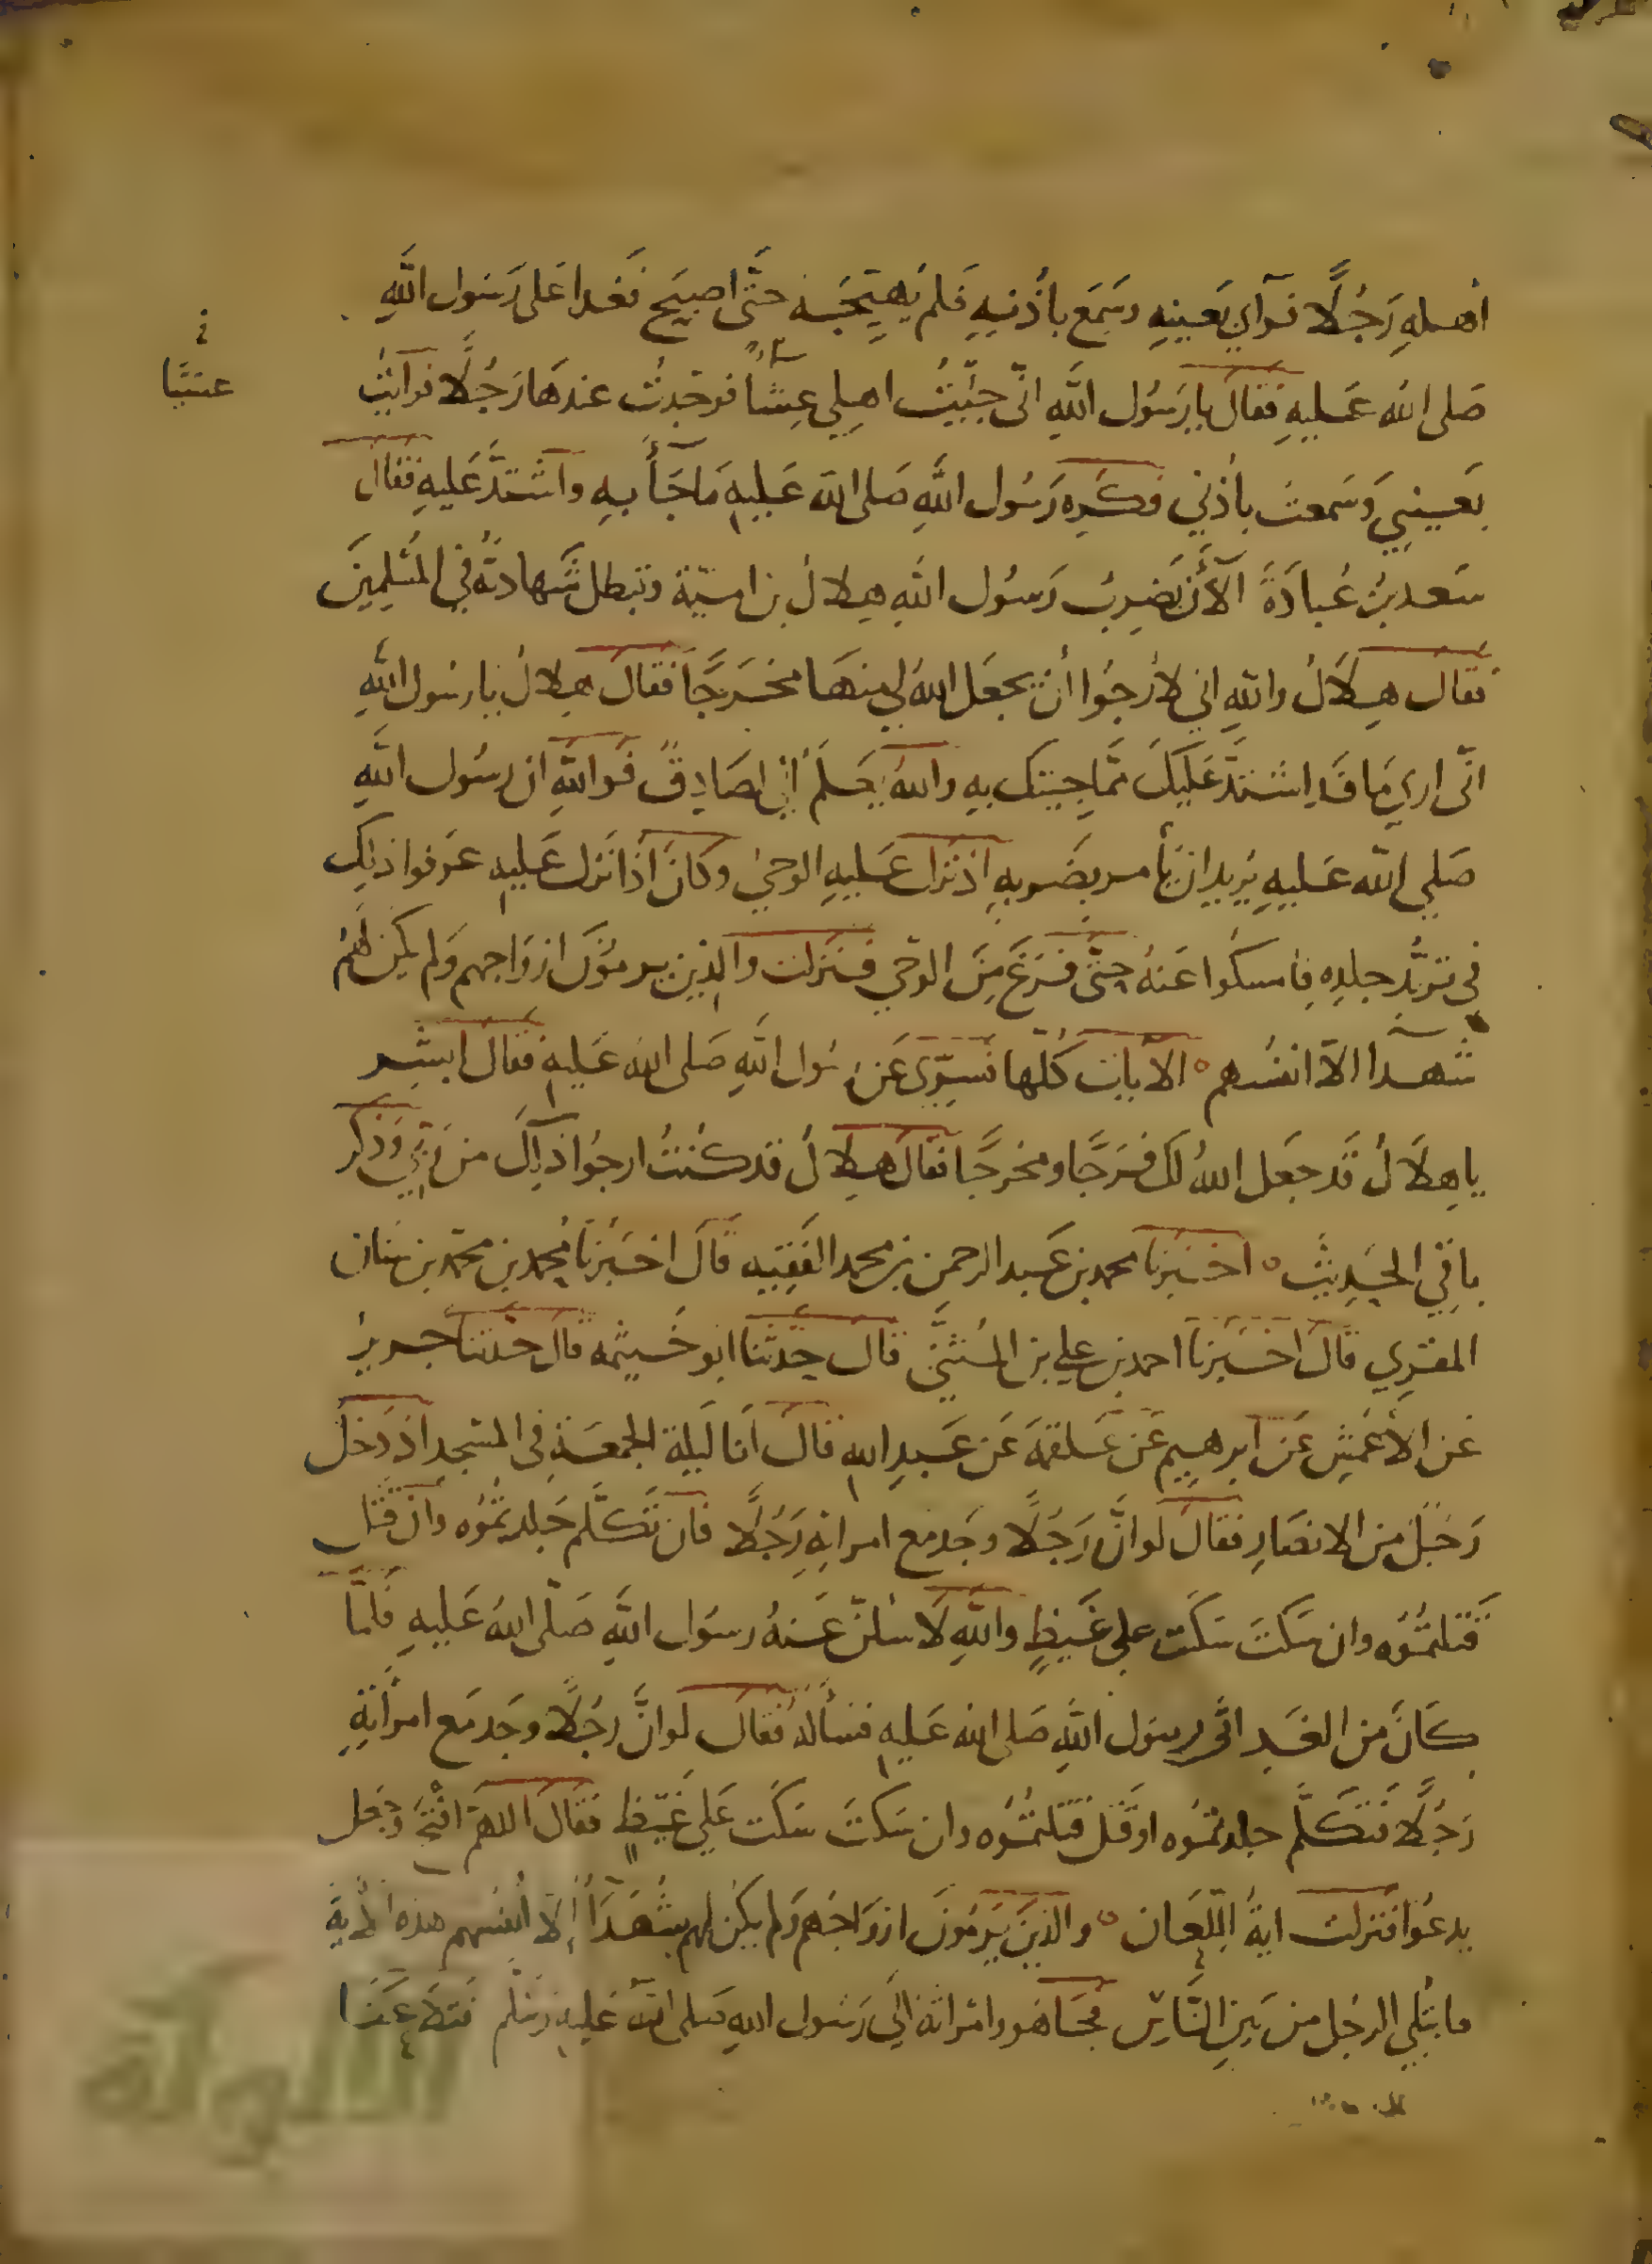 أهلهِ رَجُلًا فرآي بعَينيهِ وسَمِعَ بأُذنيهِ فَلم يُهيجهُ حتَّى اصبحَ فغدا عَلى رَسُول اللَّهِ
صَلى الله عَليهِ فقالَ يا رَسُول اللَّهِ انّى جئتُ اهلِي عِشآءً فوجَدتُ عندهَا رَجُلًا فرأيتُ
عشيًّا
بعَينيي وَسَمعتُ بأُذني فكَرِه رَسُول اللَّهِ صَلى الله عَليهِ مَا جَآءَ بهِ وآشتدَّ عَليهِ فقالَ
سَعد بنُ عُبادَةَ الآنَ يَضربُ رَسُول اللَّهِ هِلالُ بن اميّة وتبطل شهادتهُ في المُسْلِمينَ
فقالَ هِلَالُ واللهِ اني لأَرجُوا أنْ يجعَل اللهُ لي منهَا مخرَجًا فقالَ هِلالُ يا رسُول اللَّهِ
انّى اري مَا قَد اشتدَّ عَليكَ ممَّا جئتك بهِ واللهُ يَعلَمُ اني لصَادِقٌ فَواللَّهِ ان رسُول اللَّهِ
صَلي الله عَليهِ يُريد ان يأمر بضَربهِ اذ نزلَ عَليهِ الوحيُ وكانَ اذا نَزل عَليهِ عرَفوا ذلِك
في تربُّد جلدِه فامسكُوا عَنهُ حتَّى فرَغَ مِنَ الوَحي فنزلت والذين يرمُونَ ازوَاجهم وَلم يكن لهُم
شُهدآ الآ انفسُهم ۝ الآيات كلّها فسُرّى عَن رسُول اللَّهِ صَلى الله عَليهِ فقالَ ابشِر
يا هِلَالُ قَد جعَل اللهُ لكَ فرَجًا ومخرجًا فقالَ هِلالُ قد كُنتُ ارجُوا ذآلِكَ من رَبّي وَذكر
باقي الحَدِيثِ ۝ اخبَرنا محمد بن عَبد الرحمن بن محمد الفَقيه قَالَ اخبَرنَا محمد بن محمد بن سنان
المقرِي قَالَ اخبَرنا احمد بن علي بن المُثنَّى قالَ حَدثنا ابو خَيثمه قالَ حدثنا جرير
عَن الأَعْمَشِ عَن ابرهيم عَن عَلقمَةَ عَن عَبدِ اللهِ قالَ أنا لَيلةِ الجمعَةِ في المسْجد اذ دَخلَ
رَجُلٌ من الانصَارِ فقالَ لو انَّ رَجُلًا وجَد مع امراتهِ رَجُلًا فان تَكلَّم جَلدتمُوه وانْ قتَل
قَتلتمُوه وان سَكتَ سَكَت على غَيظٍ واللهِ لَأسْلنّ عَنهُ رسُول اللَّهِ صَلّى اللهُ عَليهِ فَلمَّا
كَانَ من الغَدِ اتَى رسوُل اللَّهِ صَلى الله عَليهِ فسَألهُ فقالَ لو انَّ رجُلًا وجَد مَع امرأتهِ
رَجُلًا فتَكلَّم جلدتموه او قَتل قتلتمُوه وان سَكتَ سَكَت عَلي غَيظٍ فقالَ اللهمّ افتح وجَعل
يدعُوا فنزلت ايةُ اللّعَان ۝ والذينَ يَرمُونَ ازوَاجَهم وَلم يكن لهم شُهدَآءُ إلا أنفسُهم هذه الآية
فابتُلي الرجُل من بَين النَّاسِ فجَا هو وامْراته الَى رَسُول اللهِ صَلى الله عَليهِ وسَلّم فتلاعَنا